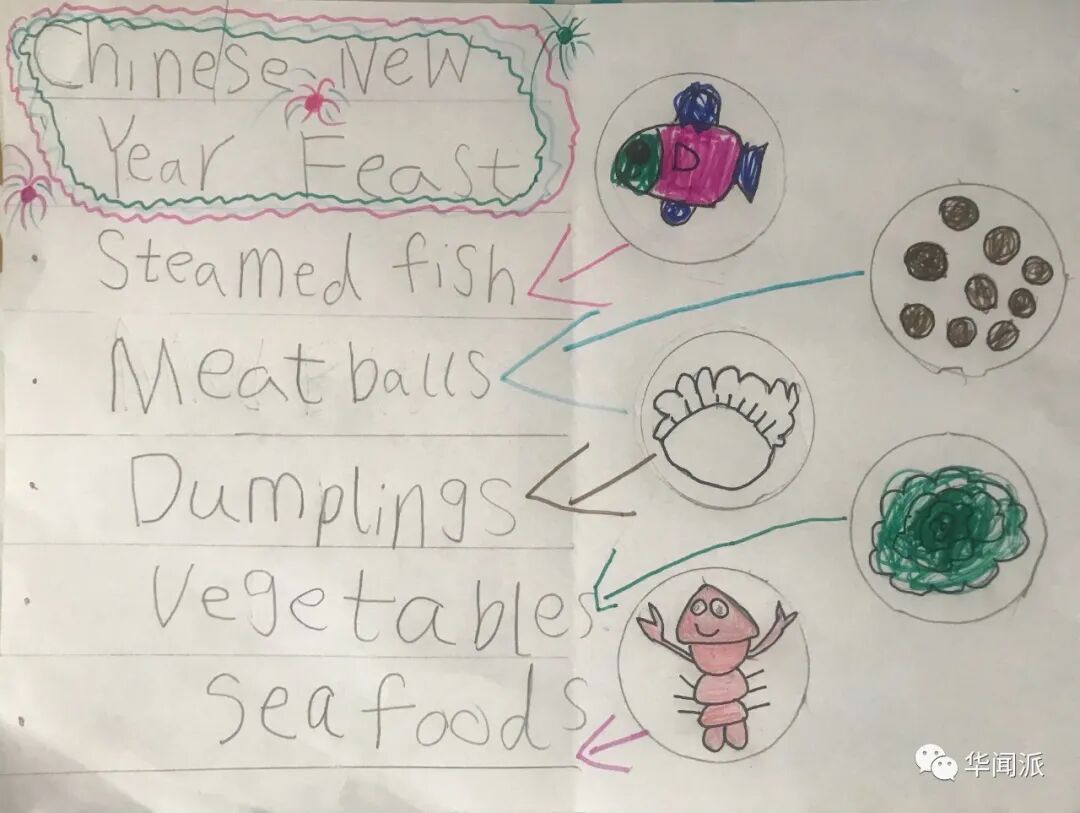 Chinese New
Year Feast
Steamed fish
Meatballs
Dumplings
Vegetables
Seafoods
D
华闻派